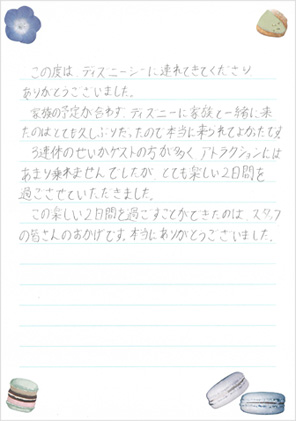 この度は、ディズニーシーに連れてきてくださり
ありがとうございました。
家族の予定が合わず、ディズニーに家族で一緒に来
たのはとても久しぶりだったので本当に来られてよかったです。
3連休のせいかゲストの方が多く、アトラクションには
あまり乗れませんでしたが、とても楽しい2日間を
過ごさせていただきました。
この楽しい2日間を過ごすことができたのは、スタッフ
の皆さんのおかげです。本当にありがとうございました。